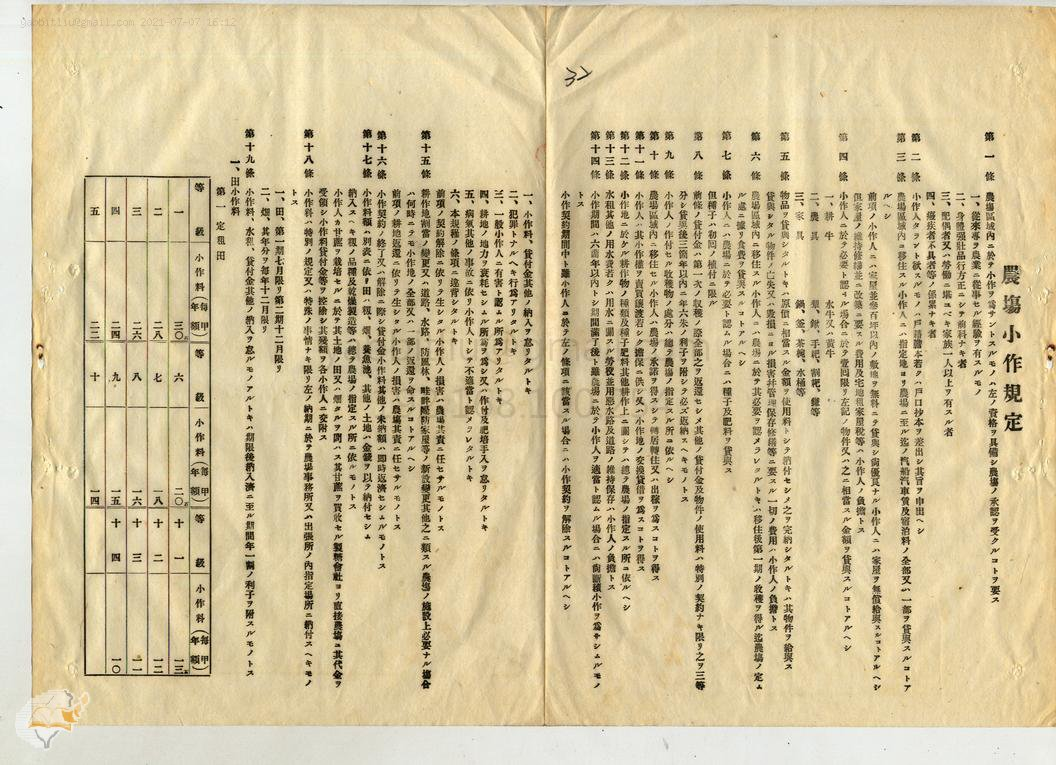 農塲小作規定
第一條 農塲區域內ニ於テ小作ヲ爲サントスルモノハ左ノ資格ヲ具備シ農塲ノ承認ヲ受クルコトヲ要ス
一、從來專ラ農業ニ從事セル經驗ヲ有スルモノ
二、身體强壯品行方正ニシテ前科ナキ者
三、配偶者又ハ勞働ニ堪ユベキ家族一人以上ヲ有スル者
四、癈疾者不具者等ノ係累ナキ者
第二條 小作人タラント欲スルモノハ戶籍謄本若クハ戶口抄本ヲ差出シ其旨ヲ申出ヘシ
第三條 農塲區域內ニ移住スル小作人ニハ指定地ヨリ農塲ニ至ル迄ノ汽船汽車賃及宿泊料ノ全部又ハ一部ヲ貸與スルコトアルヘシ
前項ノ小作人ニハ家屋並參百坪以內ノ敷地ヲ無料ニテ貸與シ尙優良ナル小作人ニハ家屋ヲ無償給與スルコトアルヘシ
但家屋ノ維持修繕並ニ改築ニ要スル費用及宅地租家屋稅等ハ小作人ノ負擔トス
第四條 小作人ニ於テ必要ト認ムル場合ニ於テ壹回限リ左記ノ物件又ハ之ニ相當スル金額ヲ貸與スルコトアルヘシ
一、耕牛 水牛又ハ黃牛
二、農具 犂、鍬、手耙、割耙、鎌等
三、家具 鍋、釜、茶椀、水桶等
第五條 物品ヲ貸與シタルトキハ原價ニ相當スル金額ヲ使用料トシテ納付セシメ之ヲ完納シタルトキハ其物件ヲ給與ス
貸與シタル物件ノ亡失又ハ毀損ニヨル損害並管理保存修繕等ニ要スル一切ノ費用ハ小作人ノ負擔トス
第六條 農塲區域內ニ移住スル小作人ニハ農塲ニ於テ其必要ヲ認メラレタルトキハ移住後第一期ノ收穫ヲ得ル迄農塲ノ定ムル處ニ據リ食費ヲ貸與スルコトアルヘシ
第七條 小作人ニハ農塲ニ於テ必要ト認ムル場合ニハ種子及肥料ヲ貸與ス
但種子ハ初回ノ植付ニ限ル
第八條 前條ノ貸付金ハ第一次ノ收穫ノ際全部之ヲ返還セシメ其他ノ貸付金及物件ノ使用料ハ特別ノ契約ナキ限リ之ヲ三等分シ貸與後三箇年以內ニ年六朱ノ利子ヲ附シ必ズ返納スヘキモノトス
第九條 小作人ノ作付セル收穫物ノ處分ハ總テ農塲ノ指定スル所ニ依ルヘシ
第十條 農塲區域內ニ移住セル小作人ハ農塲ノ承諾ヲ得スシテ轉居轉住又ハ出稼ヲ爲スコトヲ得ス
第十一條 小作人ハ其小作權ヲ賣買讓渡若シクハ擔保ニ供シ又ハ小作地ノ交換貸借ヲ爲スコトヲ得ス
第十二條 小作地ニ於ケル耕作物ノ種類及種子肥料其他耕作上ニ關シテハ總テ農塲ノ指定スル所ニ依ルヘシ
第十三條 水租其他ノ用水費若クハ用水ニ關スル勞役並用惡水路及道路ノ維持保存ハ小作人ノ負擔トス
第十四條 小作期間ハ六箇年以內トシ期間滿了後ト雖農塲ニ於テ小作人ヲ適當ト認ムル場合ニハ尙斷續小作ヲ爲サシムルモノトス
小作契約期間中ト雖小作人ニ於テ左ノ條項ニ該當スル場合ニハ小作契約ヲ解除スルコトアルヘシ
一、小作料、貸付金其他ノ納入ヲ怠リタルトキ
二、犯罪トナルヘキ行爲アリタルトキ
三、一般小作人ニ有害ト認ムル所爲アリタルトキ
四、耕地ノ地力ヲ衰耗セシムル所爲ヲ爲シ又ハ作付及肥培手入ヲ怠リタルトキ
五、病氣其他ノ事故ニ依リ小作人トシテ不適當ト認メラレタルトキ
六、本規程ノ條項ニ違背シタルトキ
前項ノ契約解除ニ依リテ生シタル小作人ノ損害ハ農塲其責ニ任セサルモノトス
第十五條 耕作地割當ノ變更又ハ道路、水路、防風林、畦畔隄防家屋等ノ新設變更其他之ニ類スル農塲ノ施設上必要ナル塲合ハ何時ニテモ小作地ノ全部又ハ一部ノ返還ヲ命スルコトアルヘシ
前項ノ耕地返還ニ依リテ生シタル小作人ノ損害ハ農塲其責ニ任セサルモノトス
第十六條 小作契約ノ終了又ハ解除ニ際シ貸付金小作料其他ノ未納額ハ卽時返濟セシムルモノトス
第十七條 小作料額ハ別表ニ依リ田ハ穀、畑、養魚池、其他ノ土地ハ金錢ヲ以テ納付セシム
納入スヘキ穀ノ品種及乾燥製造等ハ總テ農塲ノ指定スル所ニ依ルモノトス
小作人カ甘蔗ヲ栽培セルニ於テ其土地ノ田又ハ畑タルヲ問ハス其甘蔗ヲ買收セル製糖會社ヨリ直接農塲ニ其代金ヲ受領シ小作料貸付金等ヲ控除シ其殘額ヲ各小作人ニ交附ス
第十八條 小作料ハ特別ノ規定又ハ特殊ノ事情ナキ限リ左ノ納期ニ於テ農塲事務所又ハ出張所ノ內指定場所ニ納付スヘキモノトス
一、田、第一期七月限リ第二期十二月限リ
二、畑、其年分ヲ每年十二月限リ
第十九條 小作料、水租、貸付金其他ノ納入ヲ怠ルモノアルトキハ期限後納入濟ニ至ル期間年一割ノ利子ヲ附スルモノトス
一、田小作料
第一 定租田
等級 小作料(每甲年額) 等級 小作料(每甲年額) 等級 小作料(每甲年額)
一 三〇石 六 二〇石 十一 一三石
二 二八 七 一八 十二 一二
三 二六 八 一六 十三 一一
四 二四 九 一五 十四 一〇
五 二二 十 一四
32
gabbitliu@gmail.com 2021-07-07 16:12